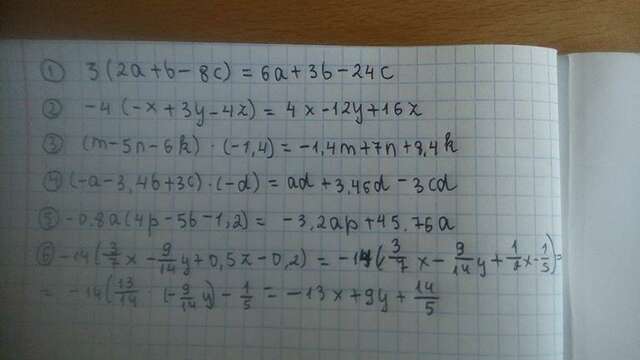 ① 3(2a+b-8c) = 6a+3b-24c
② -4(-x+3y-4z) = 4x-12y+16z
③ (m-5n-6k)·(-1,4) = -1,4m+7n+8,4k
④ (-a-3,4b+3c)·(-d) = ad+3,4bd-3cd
⑤ -0,8a(4p-5b-1,2) = -3,2ap+45,76a
⑥ -14(3/7x-9/14y+0,5z-0,2) = -14(3/7x-9/14y+1/2x-1/5)=
= -14(13/14 (-9/14y)-1/5 = -13x+9y+14/5